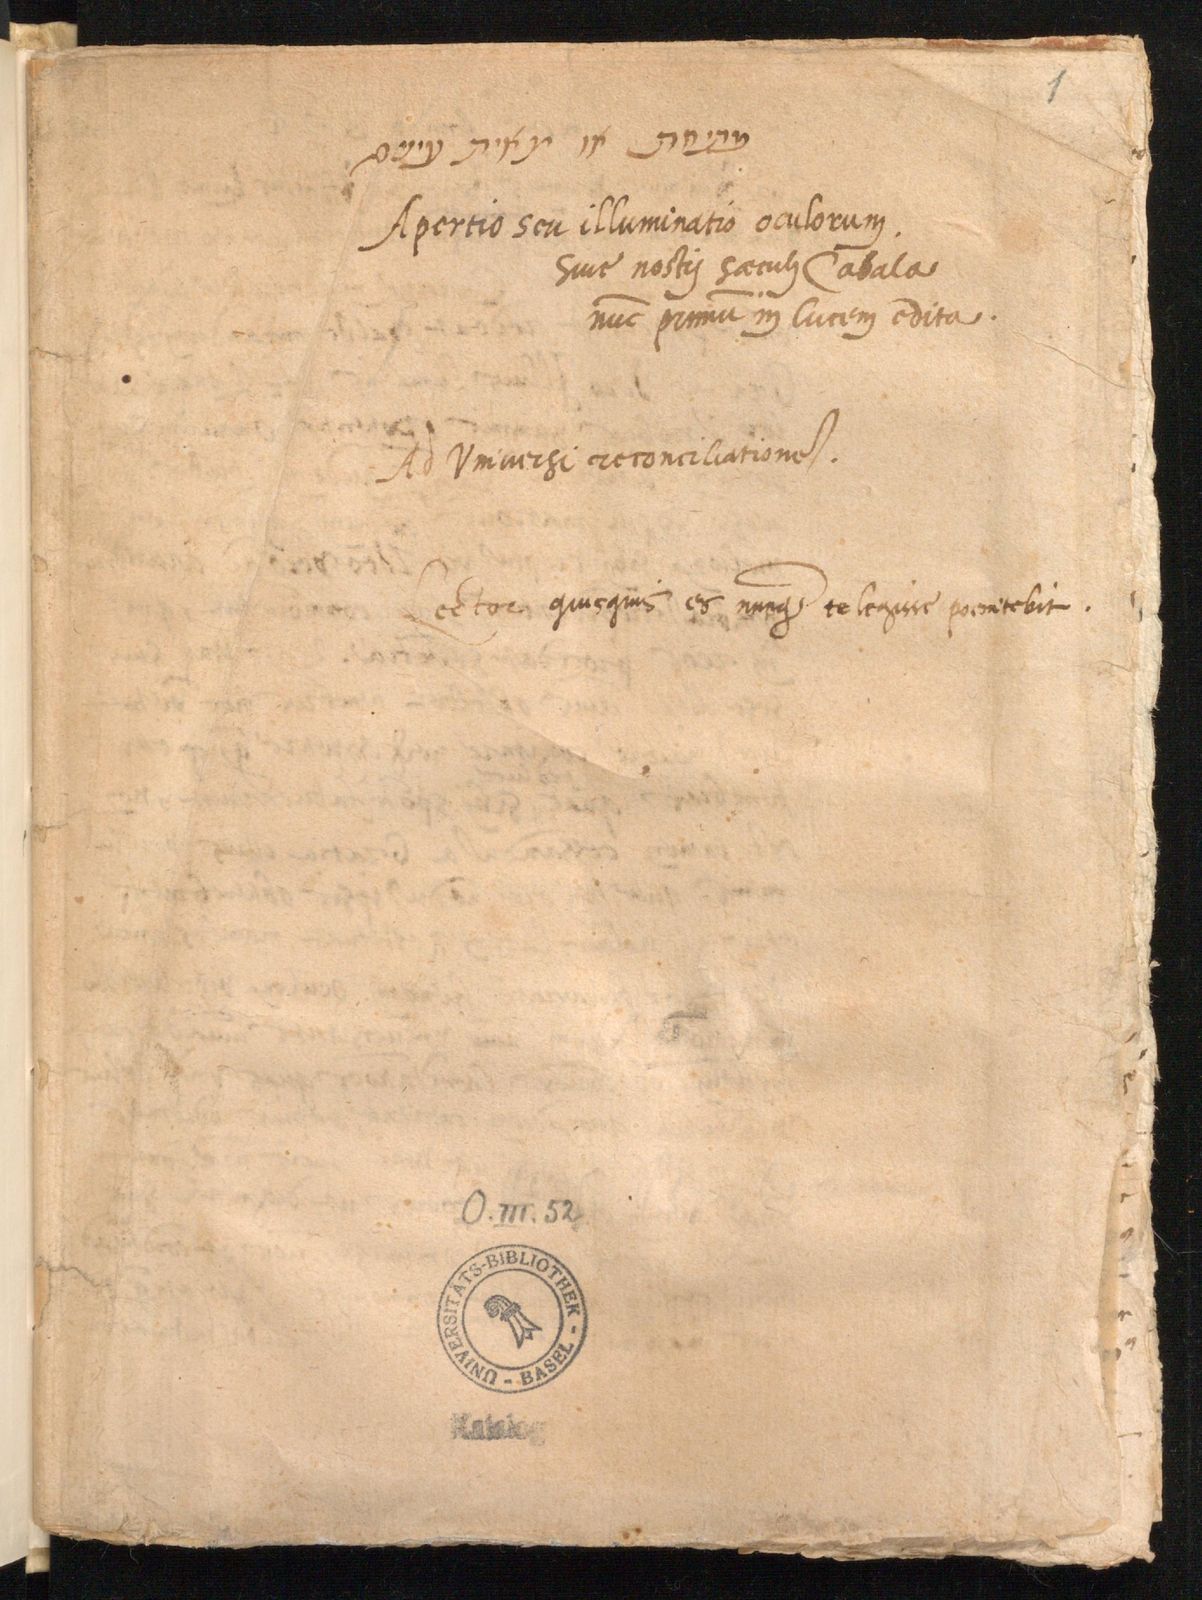 1
או עינים
Apertio seu illuminatio oculorum.
Siue nostrj sæculj Cabala
nūc primū in lucem edita.
Ad Vniuersi reconciliationē.
Lector quisquis es nunq̄ te legisse poenitebit.
O. III. 52
UNIVERSITÄTS-BIBLIOTHEK - BASEL -
Katalog